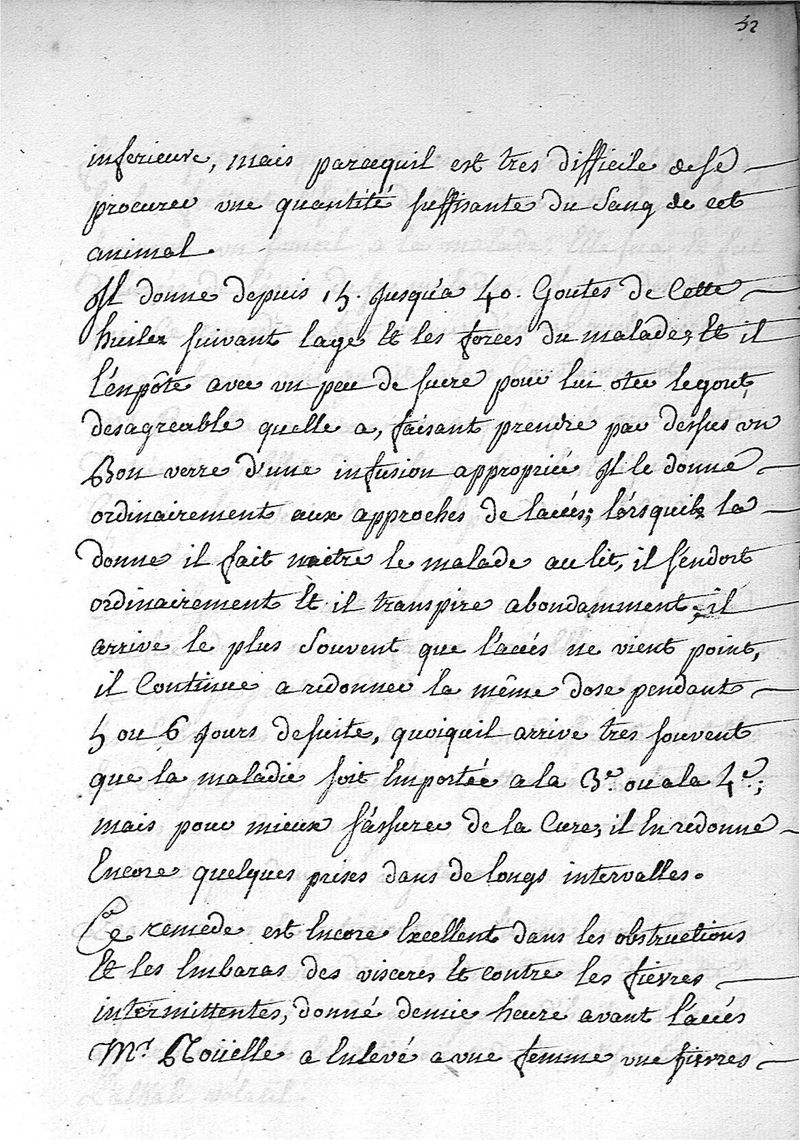 52
inferieure, mais parcequil est tres difficile de se
procurer une quantité suffisante du Sang de cet
animal.
Il donne depuis 15. Jusqu'a 40. Goutes de Cette
huile, suivant lage Et les forces du malade, Et il
l'enpâte avec un peu de sucre pour lui oter legout
desagreable quelle a, faisant prendre par dessus un
Bon verre d'une infusion appropriée Il le donne
ordinairement aux approches de laccés; lórsquil la
donne il fait mettre le malade au lit, il sendort
ordinairement Et il transpire abondamment, il
arrive le plus Souvent que l'accés ne vient point,
il Continue a redonner la même dose pendant
5 ou 6 Jours desuite, quoiquil arrive tres souvent
que la maladie soit Emportée a la 3e. ou a la 4e.;
mais pour mieux s'assurer de la Cure, il En redonne
Encore quelques prises dans de longs intervalles.
Ce remede est Encore Excellent dans les obstructions
Et les Embaras des visceres Et contre les fievres
intermittentes, donné demie heure avant l'accés
Mr. Roüelle a Enlevé a une femme une fievres